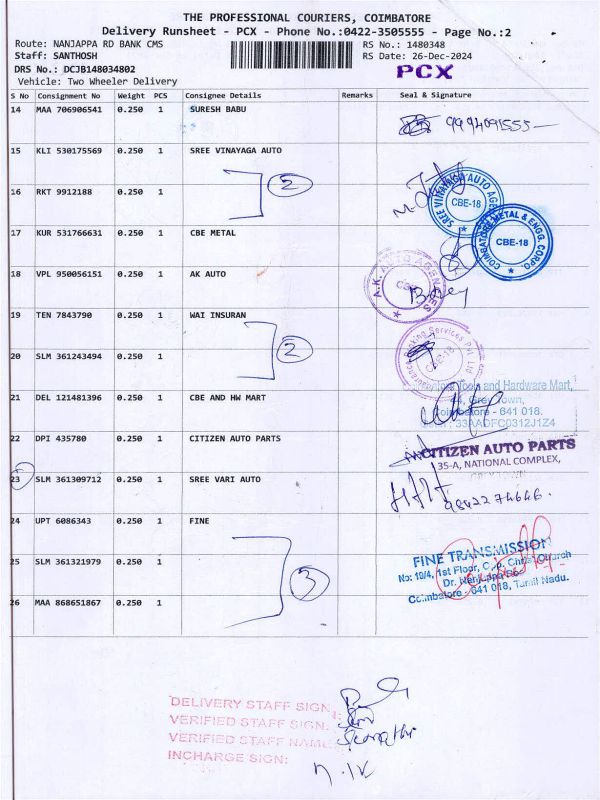 THE PROFESSIONAL COURIERS, COIMBATORE
Delivery Runsheet - PCX - Phone No.:0422-3505555 - Page No.:2
Route: NANJAPPA RD BANK CMS
RS No.: 1480348
Staff: SANTHOSH
RS Date: 26-Dec-2024
DRS No.: DCJB148034802
PCX
Vehicle: Two Wheeler Delivery
S No Consignment No Weight PCS Consignee Details Remarks Seal & Signature
14 MAA 706906541 0.250 1 SURESH BABU
9994091555
15 KLI 530175569 0.250 1 SREE VINAYAGA AUTO
2
SREE VINAYAGA AUTO AGEN
CBE-18
16 RKT 9912188 0.250 1
COIMBATORE METAL & ENGG. CORPO.
CBE-18
17 KUR 531766631 0.250 1 CBE METAL
18 VPL 950056151 0.250 1 AK AUTO
A.K. AUTO AGENCIES
19 TEN 7843790 0.250 1 WAI INSURAN
2
Broking Services Pvt. Ltd
CBE-18
20 SLM 361243494 0.250 1
Tools and Hardware Mart,
Town,
Coimbatore - 641 018.
33AADFC0312J1Z4
21 DEL 121481396 1 0.250 1 CBE AND HW MART
22 DPI 435780 0.250 1 CITIZEN AUTO PARTS
CITIZEN AUTO PARTS
35-A, NATIONAL COMPLEX,
23 SLM 361309712 0.250 1 SREE VARI AUTO
9842274646.
24 UPT 6086343 0.250 1 FINE
3
FINE TRANSMISSION
No: 19/4, 1st Floor, Opp. Christ Church
Dr. Nanjappa Road
Coimbatore - 641 018, Tamil Nadu.
25 SLM 361321979 0.250 1
26 MAA 868651867 0.250 1
DELIVERY STAFF SIGN
VERIFIED STAFF SIGN:
VERIFIED STAFF NAME:
INCHARGE SIGN: